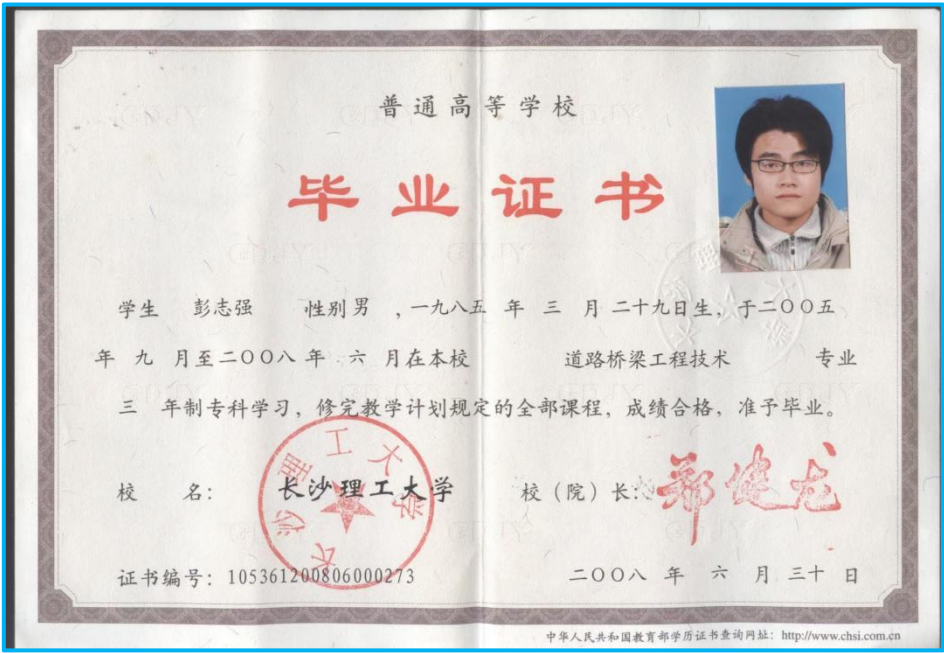 普通高等学校
毕业证书
学生 彭志强 性别男 ，一九八五 年 三 月 二十九日生，于二〇〇五
年 九 月至二〇〇八 年 六 月在本校 道路桥梁工程技术 专业
三 年制专科学习，修完教学计划规定的全部课程，成绩合格，准予毕业。
校 名： 长沙理工大学
长沙理工大学
校（院）长： 郑健龙
证书编号：105361200806000273
二〇〇八 年 六 月 三十 日
中华人民共和国教育部学历证书查询网址：http://www.chsi.com.cn